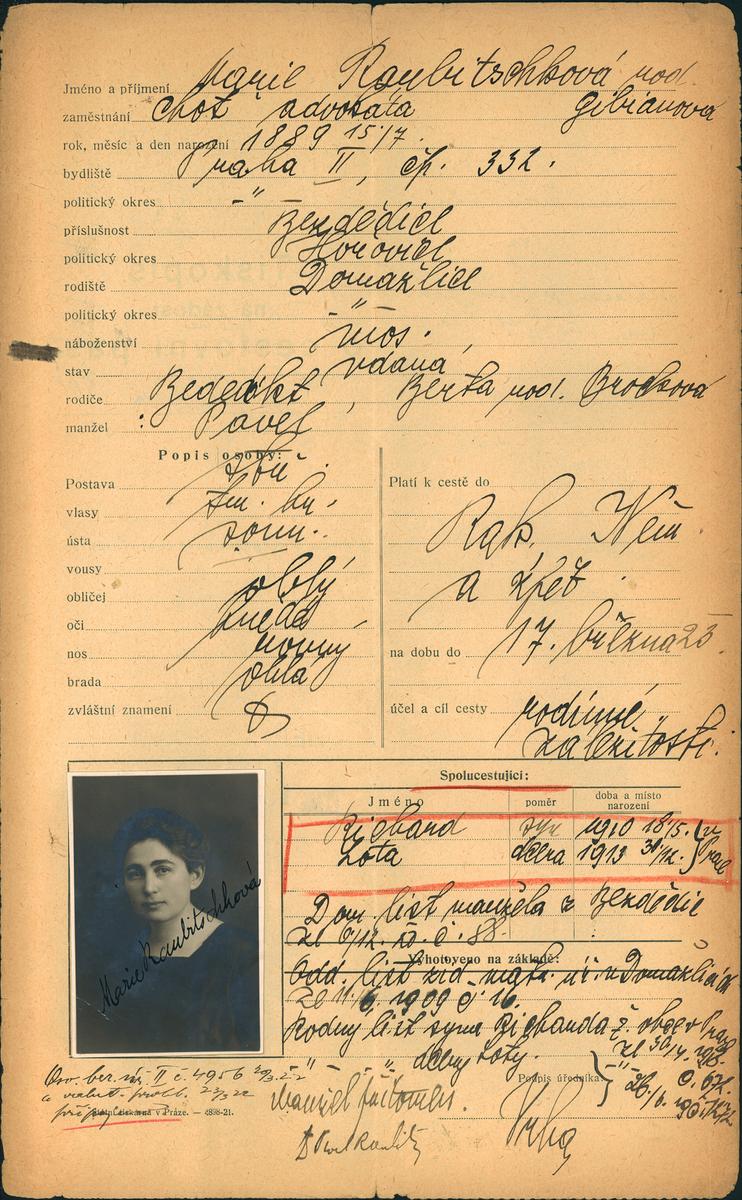 Jméno a příjmení Marie Raubitschková rod.
zaměstnání choť advokáta Gibianova
rok, měsíc a den narození 1889 15/7.
bydliště Praha II, čp. 332.
politický okres -"-
příslušnost Bezdědice
politický okres Hořovice
rodiště Domažlice
politický okres -"-
náboženství mos.
stav vdaná
rodiče Bedřich, Berta rod. Brocková
manžel : Pavel
Popis osoby:
Postava
vlasy tm. hn.
ústa soum.
vousy
obličej oblý
oči hnědé
nos rovný
brada oblá
zvláštní znamení
Platí k cestě do
Rak. Něm
a zpět.
na dobu do 17. března 23
účel a cíl cesty rodinné
záležitosti.
Spolucestující:
Jméno poměr doba a místo narození
Richard syn 1910 18/5. } v
Lota dcera 1913 31/12. } Praze
Dom. list manžela z Bezdědic
Vyhotoveno na základě:
Odd. list žid. matr. úř. v Domažlicích
ze 11/6. 1909 č. 16.
Rodný list syna Richarda ž. obce v Praze
-"- " dcery Loty.
Podpis úředníka:
Marie Raubitschková
Státní tiskárna v Praze. — 4898-21.
manžel přítomen.
Vrba